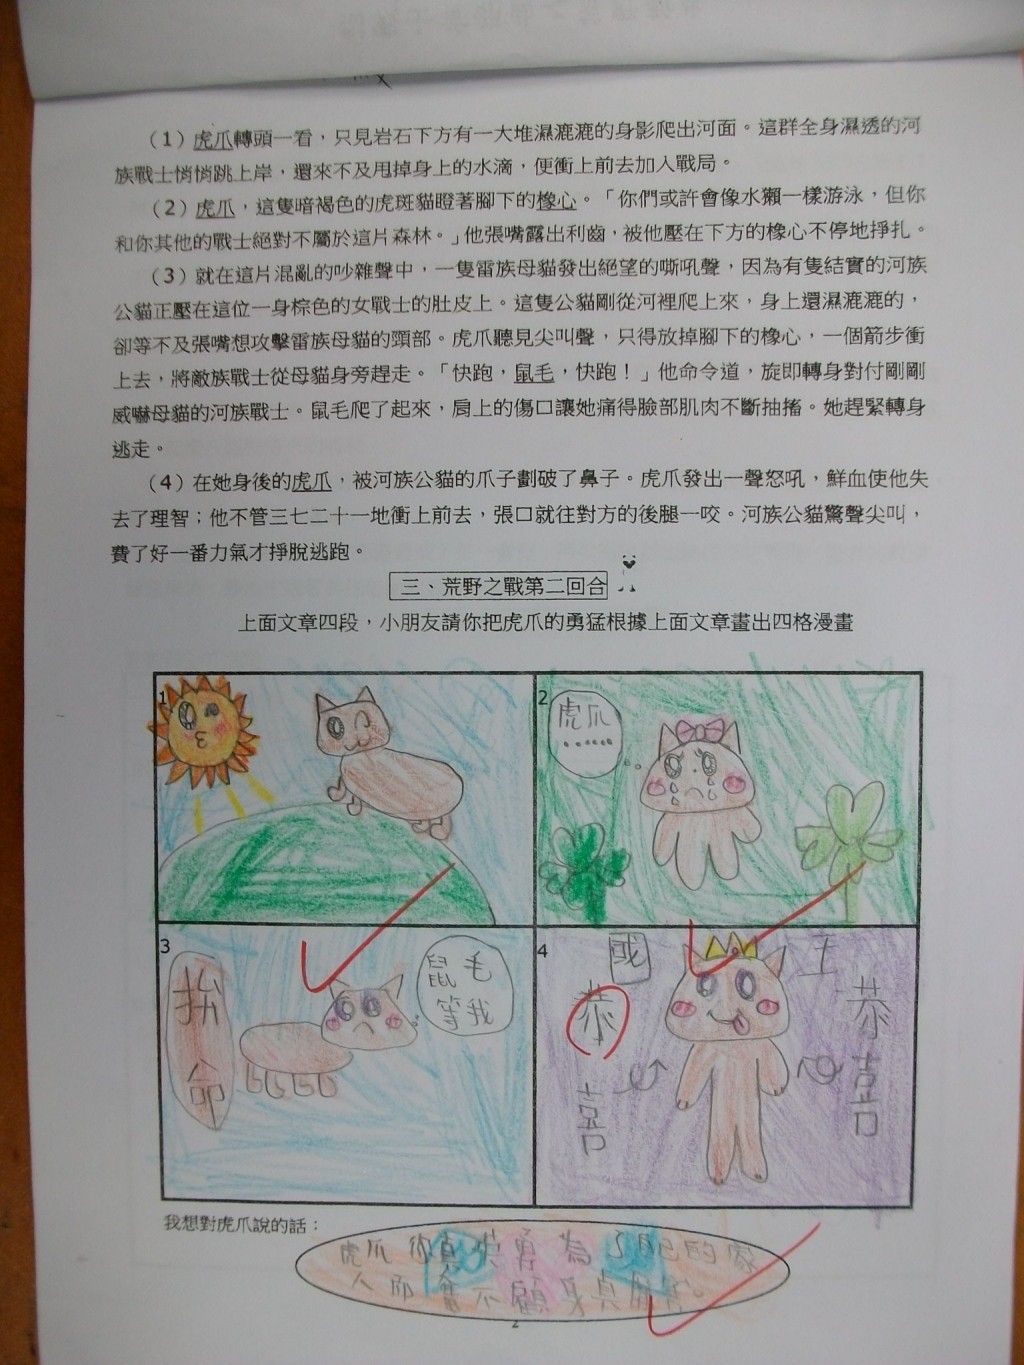 （1）虎爪轉頭一看，只見岩石下方有一大堆濕漉漉的身影爬出河面。這群全身濕透的河
族戰士悄悄跳上岸，還來不及甩掉身上的水滴，便衝上前去加入戰局。
（2）虎爪，這隻暗褐色的虎斑貓瞪著腳下的橡心。「你們或許會像水獺一樣游泳，但你
和你其他的戰士絕對不屬於這片森林。」他張嘴露出利齒，被他壓在下方的橡心不停地掙扎。
（3）就在這片混亂的吵雜聲中，一隻雷族母貓發出絕望的嘶吼聲，因為有隻結實的河族
公貓正壓在這位一身棕色的女戰士的肚皮上。這隻公貓剛從河裡爬上來，身上還濕漉漉的，
卻等不及張嘴想攻擊雷族母貓的頸部。虎爪聽見尖叫聲，只得放掉腳下的橡心，一個箭步衝
上去，將敵族戰士從母貓身旁趕走。「快跑，鼠毛，快跑！」他命令道，旋即轉身對付剛剛
威嚇母貓的河族戰士。鼠毛爬了起來，肩上的傷口讓她痛得臉部肌肉不斷抽搐。她趕緊轉身
逃走。
（4）在她身後的虎爪，被河族公貓的爪子劃破了鼻子。虎爪發出一聲怒吼，鮮血使他失
去了理智；他不管三七二十一地衝上前去，張口就往對方的後腿一咬。河族公貓驚聲尖叫，
費了好一番力氣才掙脫逃跑。
三、荒野之戰第二回合
上面文章四段，小朋友請你把虎爪的勇猛根據上面文章畫出四格漫畫
1
2
虎爪
......
3
拚命
鼠毛
等我
4
國王
恭喜
恭喜
我想對虎爪說的話：
虎爪你真英勇為了自己的家
人即奮不顧身真厲害。
2